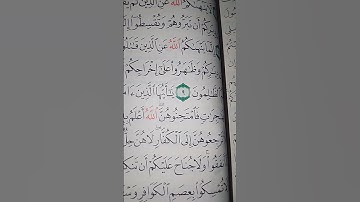 ٱللَّهُ عَنِ ٱلَّذِينَ لَمْ
كُمْ أَن تَبَرُّوهُمْ وَتُقْسِطُوٓا۟
يَنْهَىٰكُمُ ٱللَّهُ عَنِ ٱلَّذِينَ قَٰتَلُ
رِكُمْ وَظَٰهَرُوا۟ عَلَىٰٓ إِخْرَاجِكُمْ
ٱلظَّٰلِمُونَ ٩ يَٰٓأَيُّهَا ٱلَّذِينَ ءَا
جِرَٰتٍ فَٱمْتَحِنُوهُنَّ ٱللَّهُ أَعْلَمُ بِ
تَرْجِعُوهُنَّ إِلَى ٱلْكُفَّارِ لَا هُنَّ حِلٌّ
فَقُوا۟ وَلَا جُنَاحَ عَلَيْكُمْ أَن تَنكِ
تُمْسِكُوا۟ بِعِصَمِ ٱلْكَوَافِرِ وَسْ